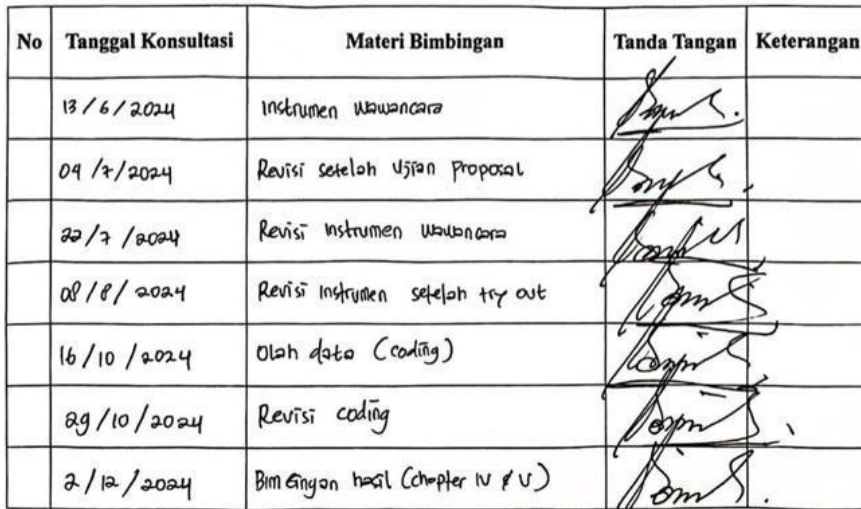 No Tanggal Konsultasi Materi Bimbingan Tanda Tangan Keterangan
13/6/2024 Instrumen wawancara
04/7/2024 Revisi setelah Ujian Proposal
22/7/2024 Revisi Instrumen wawancara
08/8/2024 Revisi Instrumen setelah try out
16/10/2024 Olah data (coding)
29/10/2024 Revisi coding
2/12/2024 Bimbingan hasil (chapter IV & V)